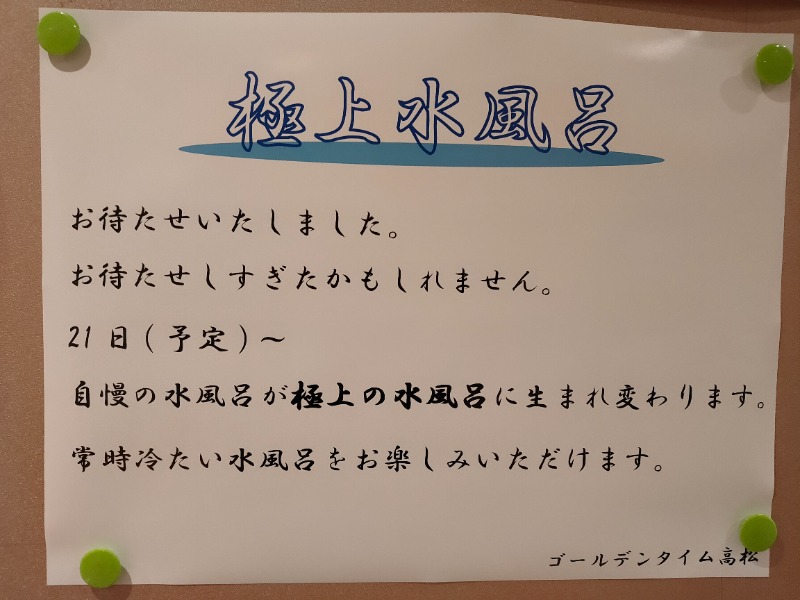 極上水風呂
お待たせいたしました。
お待たせしすぎたかもしれません。
21日(予定)～
自慢の水風呂が極上の水風呂に生まれ変わります。
常時冷たい水風呂をお楽しみいただけます。
ゴールデンタイム高松